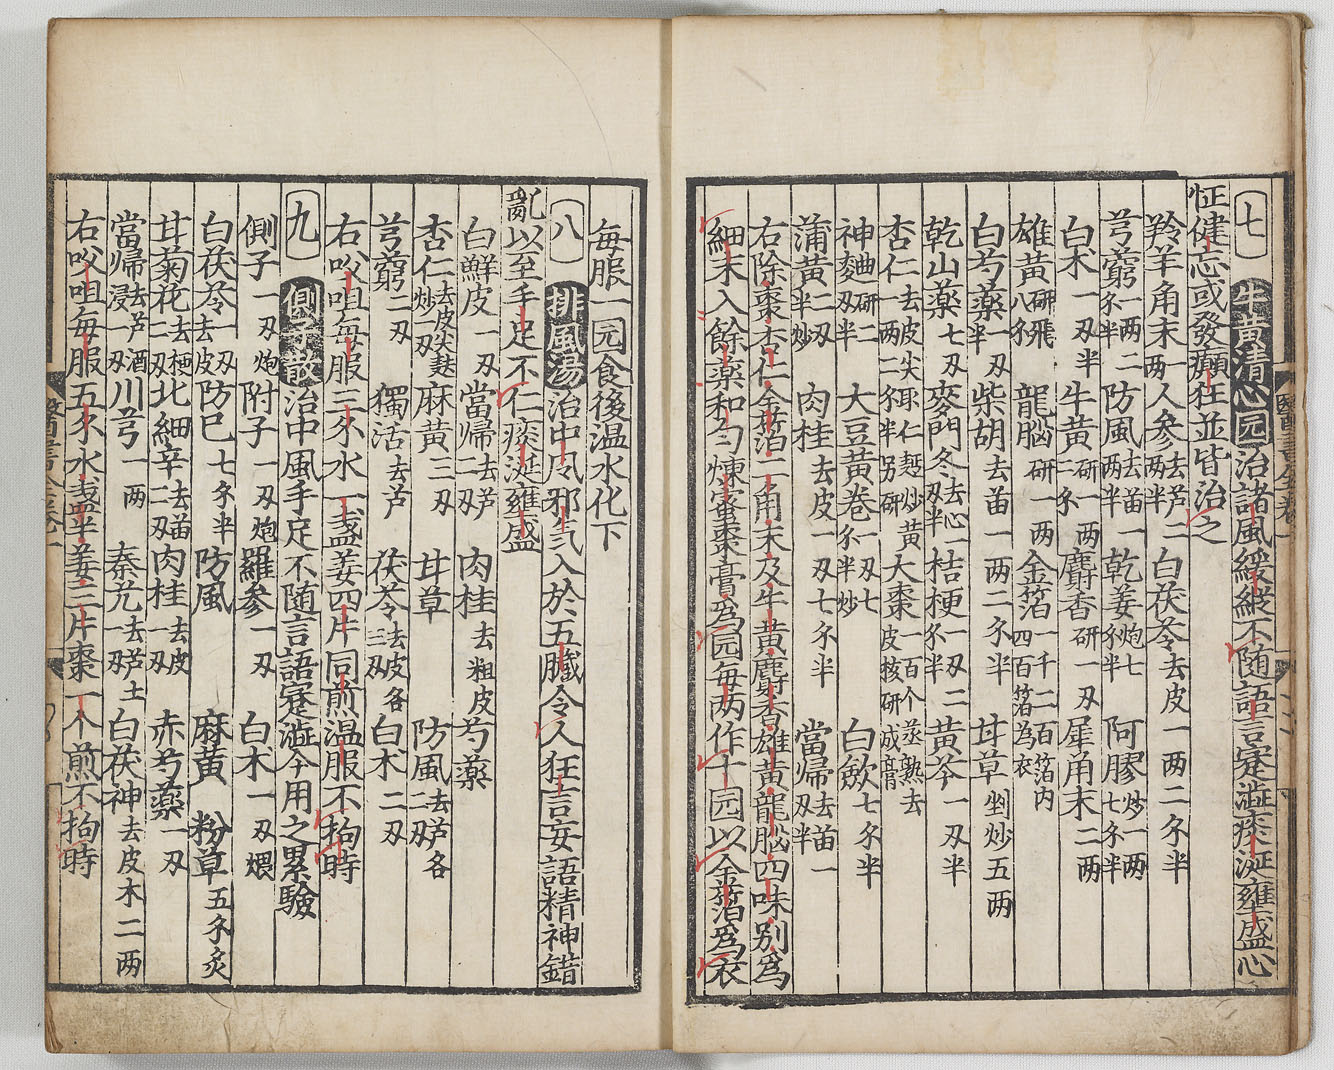 七 牛黄清心园 治諸風緩縱不随語言蹇澁痰涎壅盛心
怔健忘或發癲狂並皆治之
羚羊角末一两 人參去芦二两半 白茯苓去皮一两二分半
芎藭一两二分半 防風去苗一两半 乾姜炮七分半 阿膠炒一两七分半
白朮一刄半 牛黄研一两二分 麝香研一刄 犀角末二两
雄黄研飛八分 龍腦研一两 金箔一千二百箔内四百箔為衣
白芍藥一刄半 柴胡去苗一两二分半 甘草剉炒五两
乾山藥七刄 麥門冬去心一刄半 桔梗一刄二分半 黄芩一刄半
杏仁去皮尖双仁麸炒黄一两二分半另研 大棗一百个蒸熟去皮核研成膏
神麯研二刄半 大豆黄卷一刄七分半炒 白斂七分半
蒲黄二刄半炒 肉桂去皮一刄七分半 當帰去苗一刄半
右除棗杏仁金箔二角末及牛黄麝香雄黄龍腦四味别為
細末入餘藥和匀煉蜜棗膏為园每两作十园以金箔為衣
每服一园食後温水化下
八 排風湯 治中風邪氣入於五臓令人狂言妄語精神錯
亂以至手足不仁痰涎壅盛
白鮮皮一刄 當帰去芦二刄 肉桂去粗皮 芍藥
杏仁去皮尖麩炒一刄 麻黄三刄 甘草 防風去芦各二刄
芎藭二刄 獨活去芦 茯苓去皮各三刄 白朮二刄
右㕮咀每服三分水一盞姜四片同煎温服不拘時
九 側子散 治中風手足不随言語蹇澁今用之累驗
側子一刄炮 附子一刄炮 羅參一刄 白朮一刄煨
白茯苓一刄去皮 防已七分半 防風 麻黄 粉草五分炙
甘菊花去梗二刄 北細辛去苗二刄 肉桂去皮一刄 赤芍藥一刄
當帰去芦酒浸一刄 川芎一两 秦艽去芦土一刄 白茯神去皮木二两
右㕮咀每服五分水盞半姜三片棗一个煎不拘時